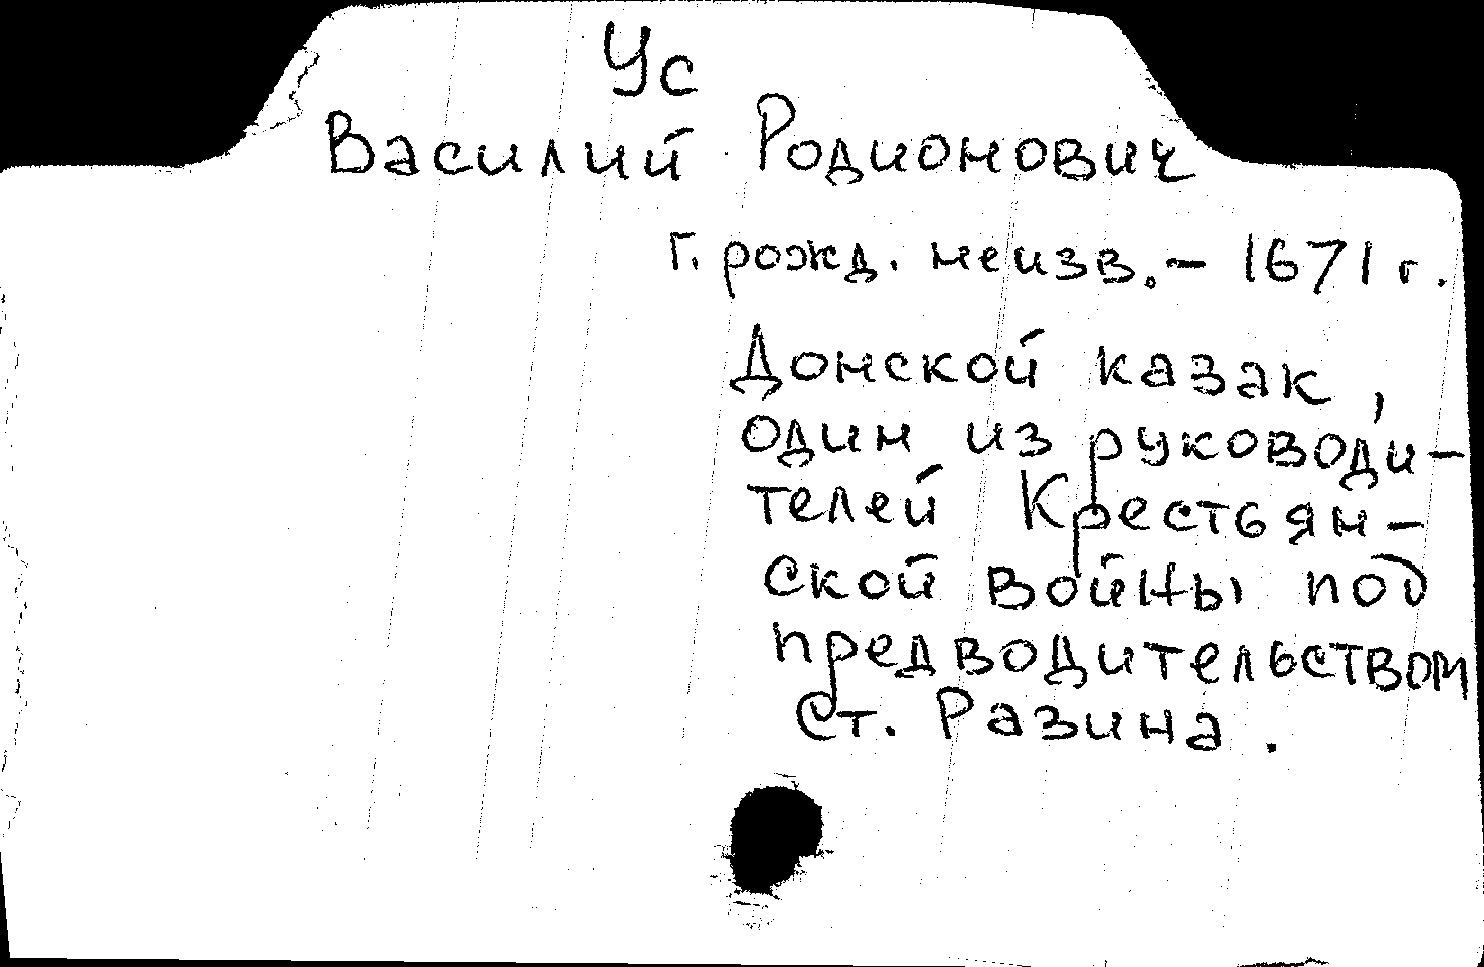 Ус
Василий Родионович
г. рожд. неизв. - 1671 г.
Донской казак,
один из руководи-
телей Крестьян-
ской войны под
предводительством
Ст. Разина.